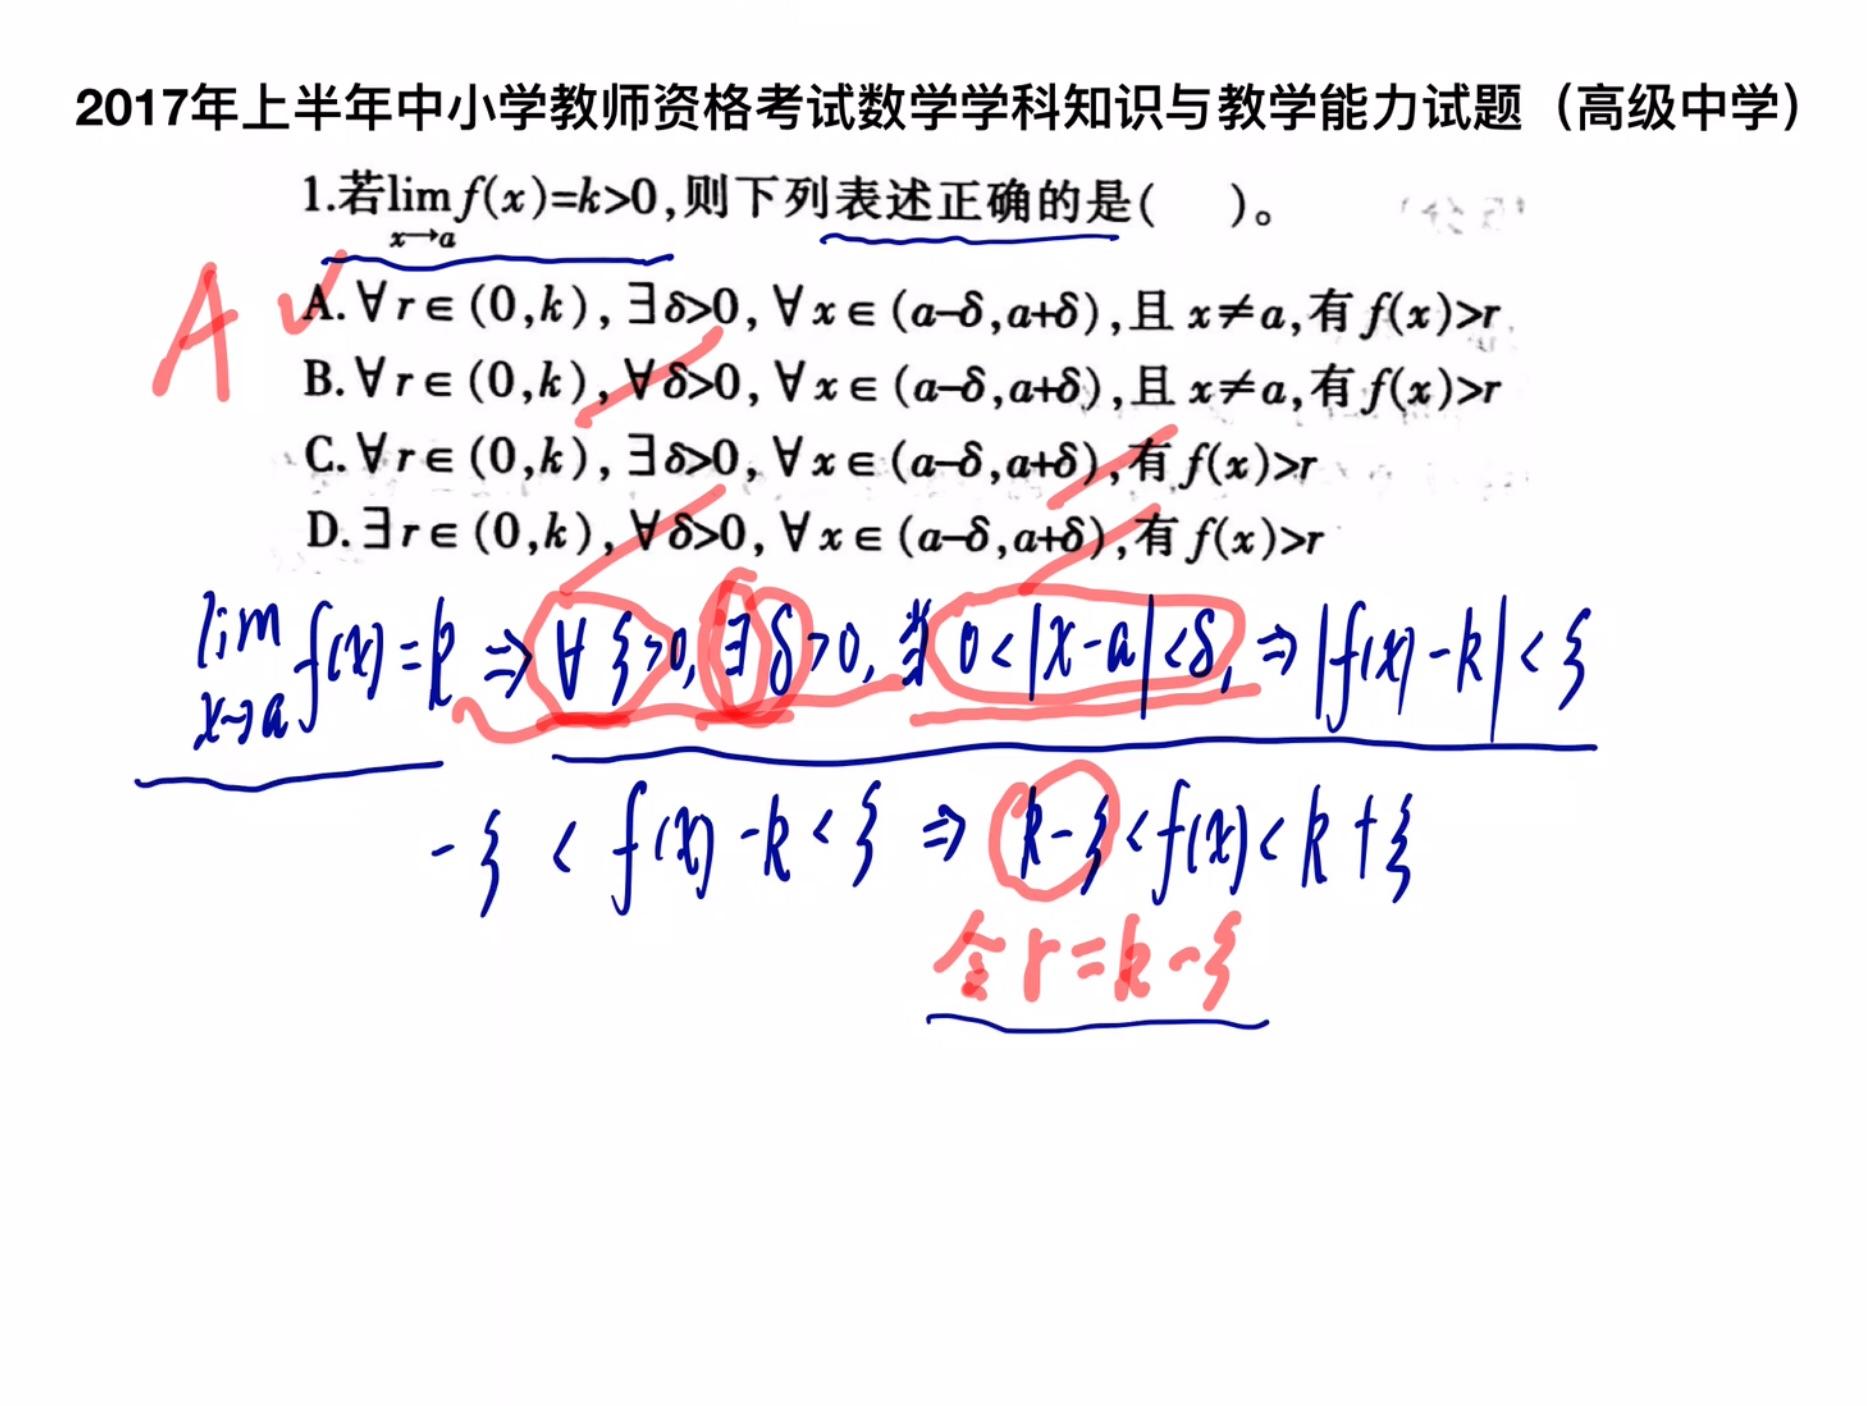 2017年上半年中小学教师资格考试数学学科知识与教学能力试题（高级中学）
1.若lim f(x)=k>0,则下列表述正确的是(　　)。
x→a
A
A.∀r∈(0,k),∃δ>0,∀x∈(a-δ,a+δ),且x≠a,有f(x)>r
B.∀r∈(0,k),∀δ>0,∀x∈(a-δ,a+δ),且x≠a,有f(x)>r
C.∀r∈(0,k),∃δ>0,∀x∈(a-δ,a+δ),有f(x)>r
D.∃r∈(0,k),∀δ>0,∀x∈(a-δ,a+δ),有f(x)>r
lim f(x)=k ⇒ ∀ξ>0,∃δ>0,当0<|x-a|<δ, ⇒ |f(x)-k|<ξ
x→a
-ξ < f(x)-k<ξ ⇒ k-ξ<f(x)<k+ξ
令r=k-ξ